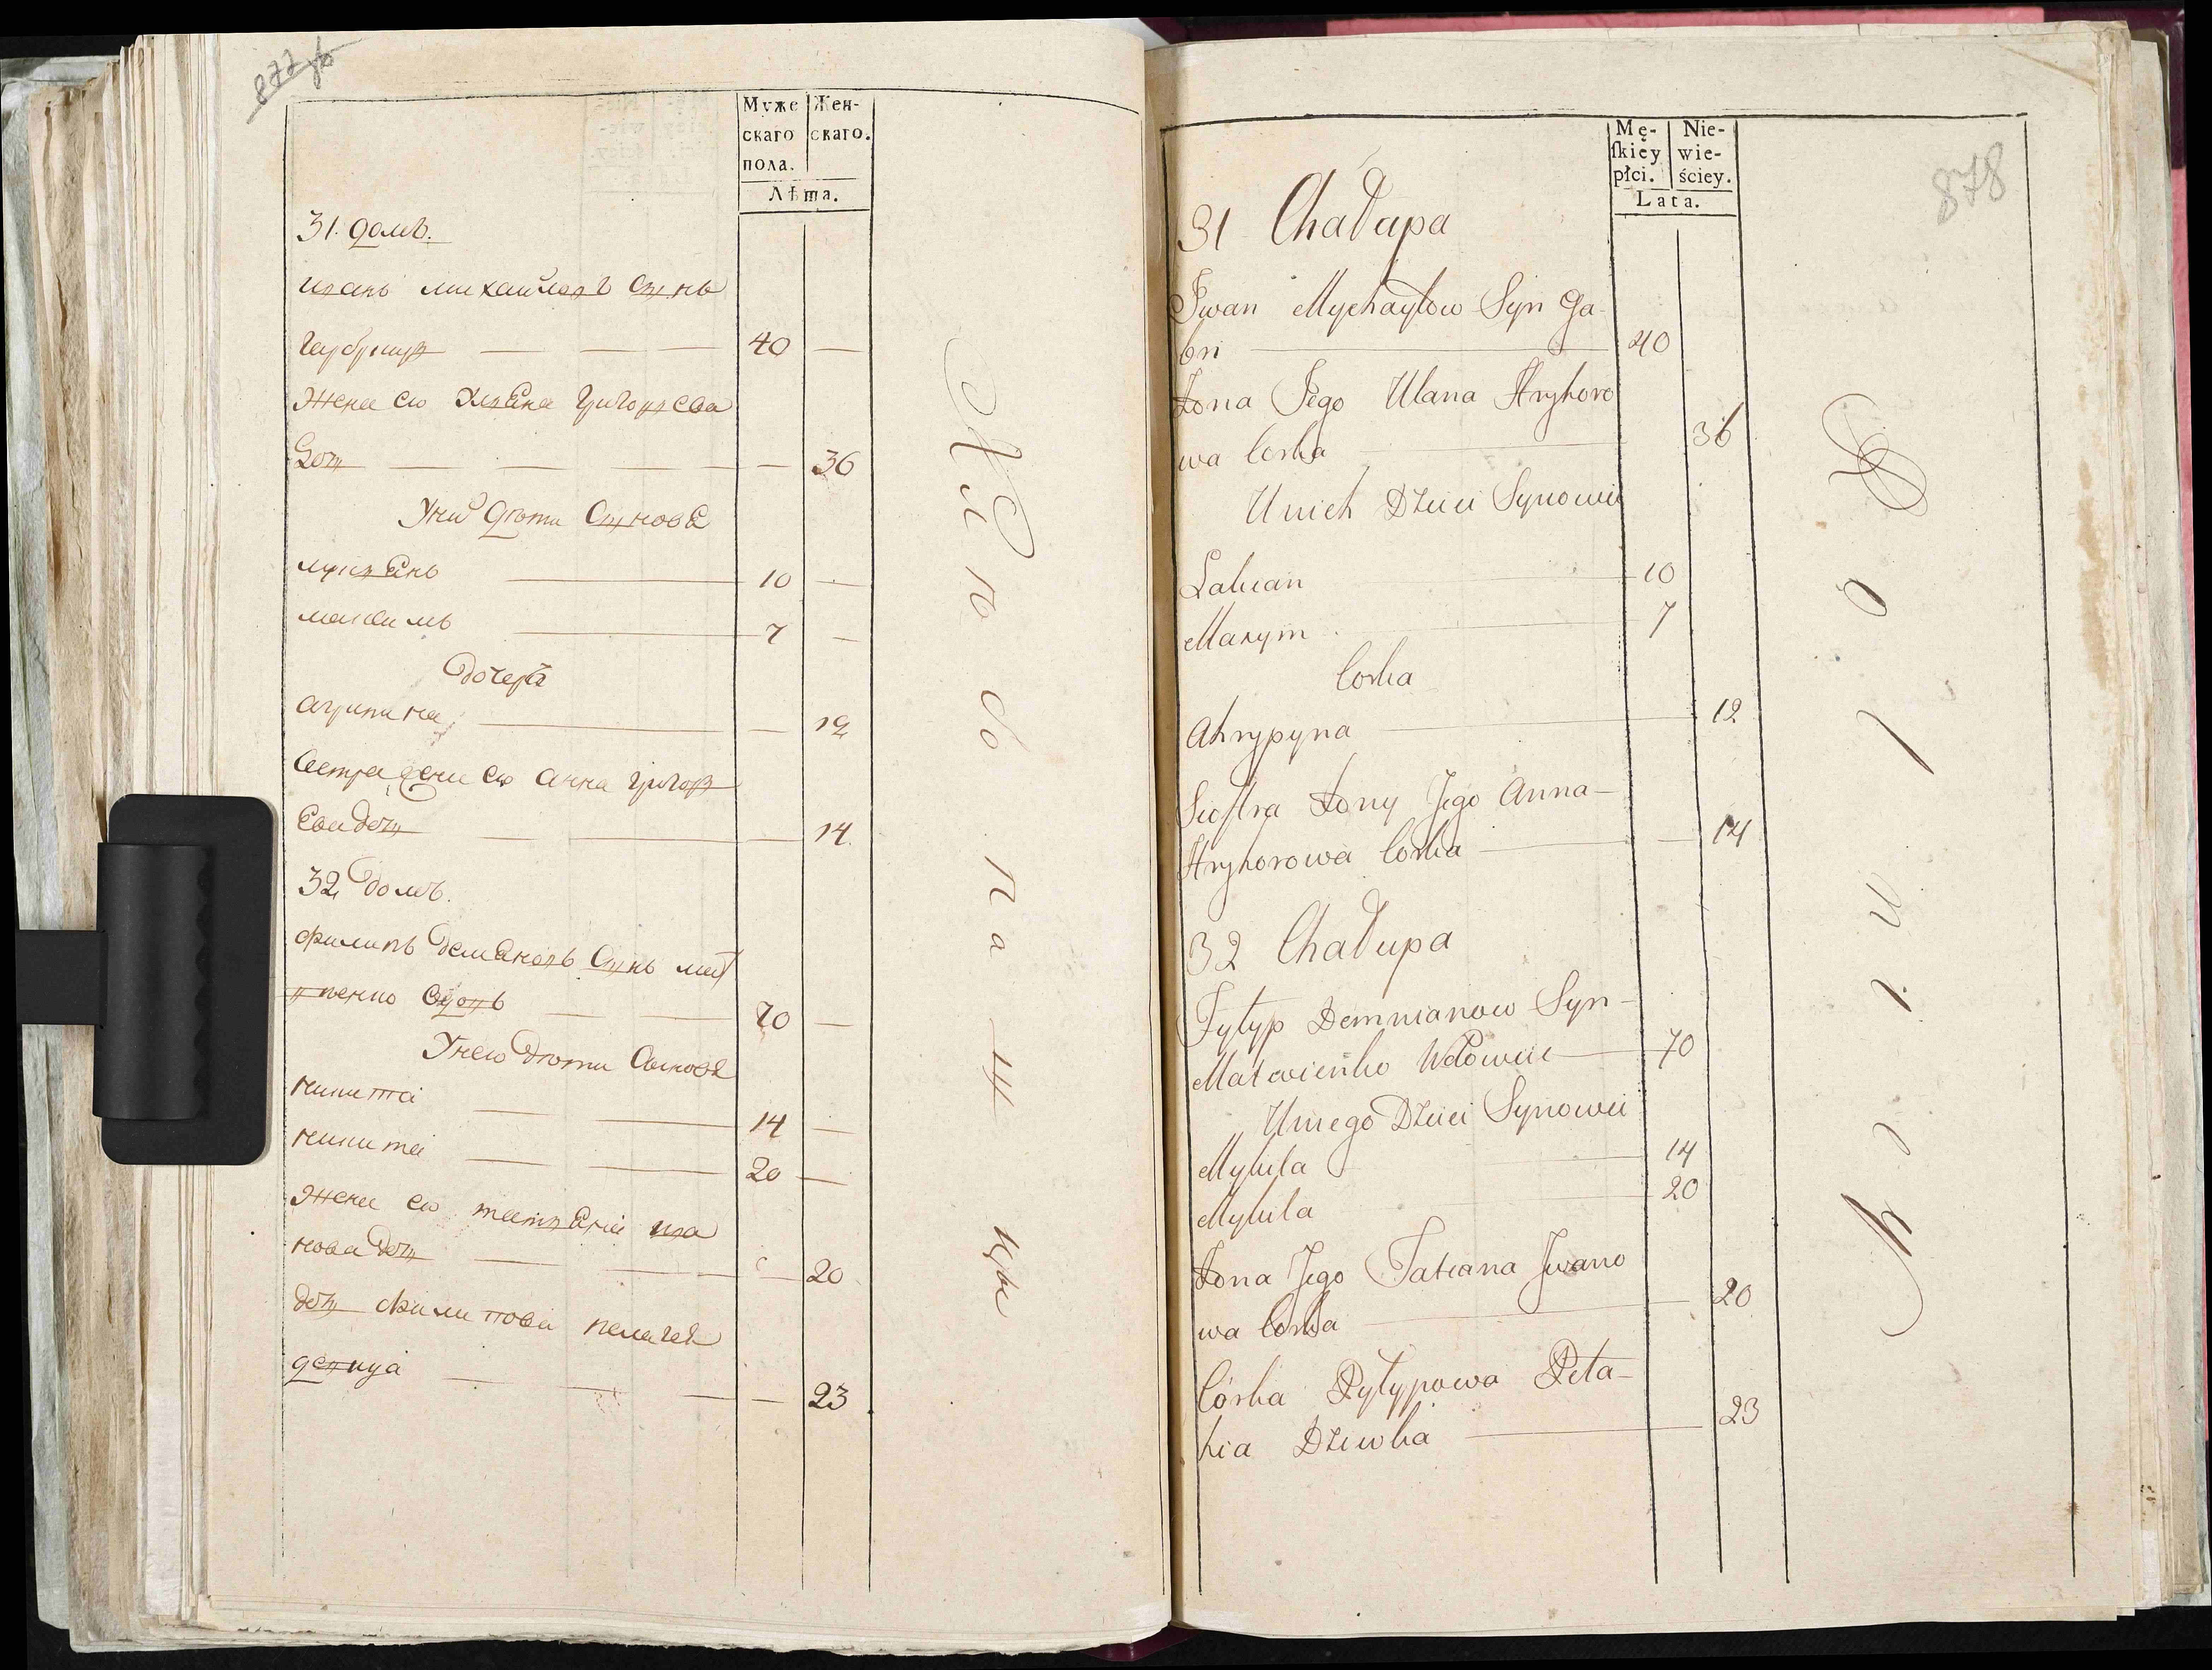 877 об
Муже
скаго
пола.
Жен-
скаго.
Лѣта.
31. домъ.
иванъ михайловъ сынъ
40 —
жена ево улЕана григорева
доч — 36
У ни дѣти Сынове
лукъЕнъ 10 —
максимъ 7 —
дочерь
агрипина — 12
Сестра жени ево анна григор
Ева доч — 14
32 домъ.
филипъ демЕновъ Сынъ мат
вѣенко вдовъ 70 —
У нево дѣти Сынове
никита 14 —
никита 20 —
жена ево татЕяна ива
нова доч — 20
доч филипова пелагея
девица — 23
Mę-
ſkiey
płci.
Nie-
wie-
ściey.
Lata.
878
31 Chałupa
Iwan Mychayłow Syn Ga-
bri 40
Żona Jego Ulana Hryhoro
wa Corka 36
U nich Dzieci Synowie
Lukian 10
Maxym 7
Corka
Ahrypyna 12
Siostra Żony Jego Anna
Hryhorowa Corka 14
32 Chałupa
Fyłyp Demnianow Syn
Matwieńko Wdowiec 70
U niego Dzieci Synowie
Mykita 14
Mykita 20
Żona Jego Tatiana Iwano
wa Corka 20
Córka Pyłypowa Pela-
hia Dziewka 23